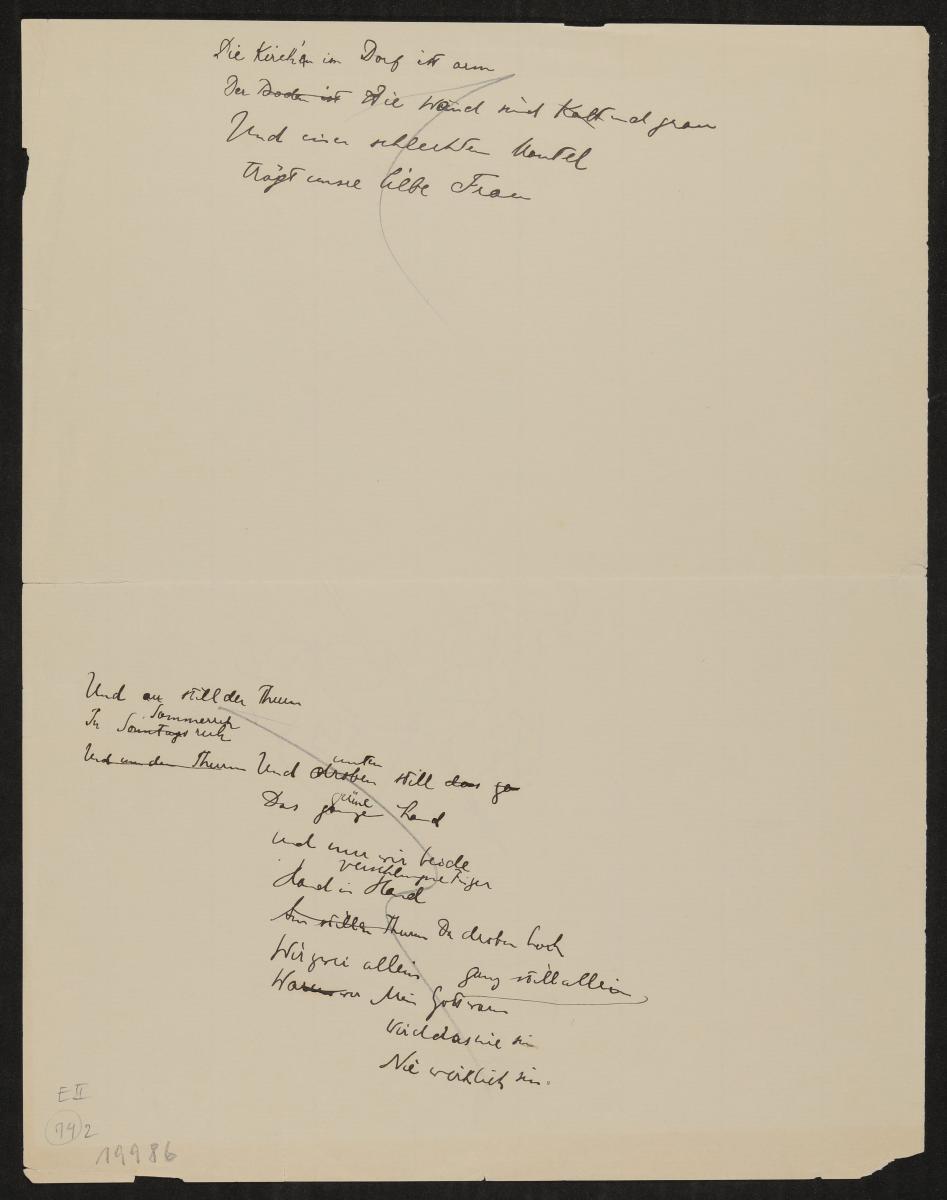 Die Kirche im Dorf ist arm
Der Boden ist Die Wänd sind Kalt und grau
Und einen schlechten Mantel
trägt unsre liebe Frau
Und so still der Thurm
Sommerruh
In Sonntagsruh
unten
Und um den Thurm Und droben still das ga
grüne
Das ganze Land
und nur wir beide
Hand in Hand
Am stillen Thurm Da droben hoch
Wir zwei allein ganz still allein
Warum Mein Gott warum
wird das nie sin
Nie wirklich sin.
E II
79 2
19986